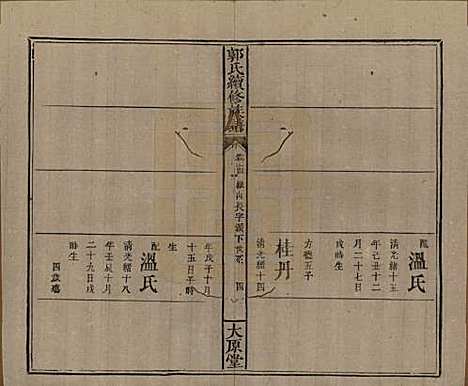 配
溫氏
清光緒十五
年己丑十二
月二十七日
戌時生
桂丹
方德五子
清光緒十四
郭氏續修族譜
長字派下世系
四
大原堂
年戊子十月
十五日子時
生
配
溫氏
清光緒十八
年壬辰十月
二十九日戌
時生
四歲殤